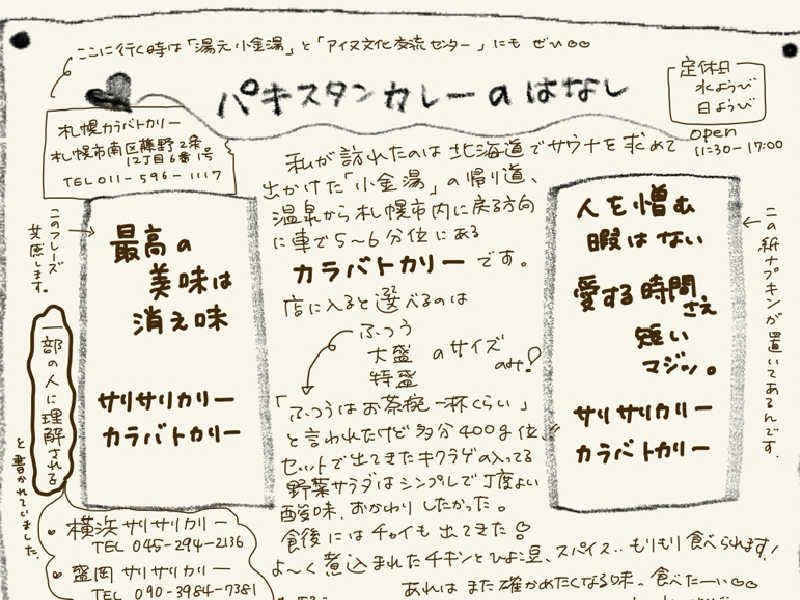 ここに行く時は「湯元 小金湯」と「アイヌ文化交流センター」にも ぜひ
パキスタンカレーのはなし
定休日
水ようび
日ようび
open
11:30-17:00
札幌カラバトカリー
札幌市南区藤野2条
12丁目6番1号
TEL 011-596-1117
私が訪れたのは 北海道でサウナを求めて
出かけた「小金湯」の帰り道、
温泉から札幌市内に戻る方向
に車で5~6分位にある
カラバトカリーです。
店に入ると選べるのは
ふつう
大盛
特盛
のサイズ
のみ!
「ふつうはお茶碗一杯くらい」
と言われたけど多分400g位!
セットで出てきたキクラゲの入ってる
野菜サラダはシンプルで丁度よい
酸味、おかわりしたかった。
食後にはチャイも出てきた!
よ~く煮込まれたチキンとひよこ豆、スパイス‥もりもり食べられます!
あれは また確かめたくなる味。食べたーい
このフレーズ
共感します。
最高の
美味は
消え味
サリサリカリー
カラバトカリー
一部の人に理解される
と書かれていました。
人を憎む
暇はない
愛する時間
さえ
短い
マジッ。
サリサリカリー
カラバトカリー
この紙ナプキンが置いてあるんです。
横浜サリサリカリー
TEL 045-294-2136
盛岡サリサリカリー
TEL 090-3984-7381